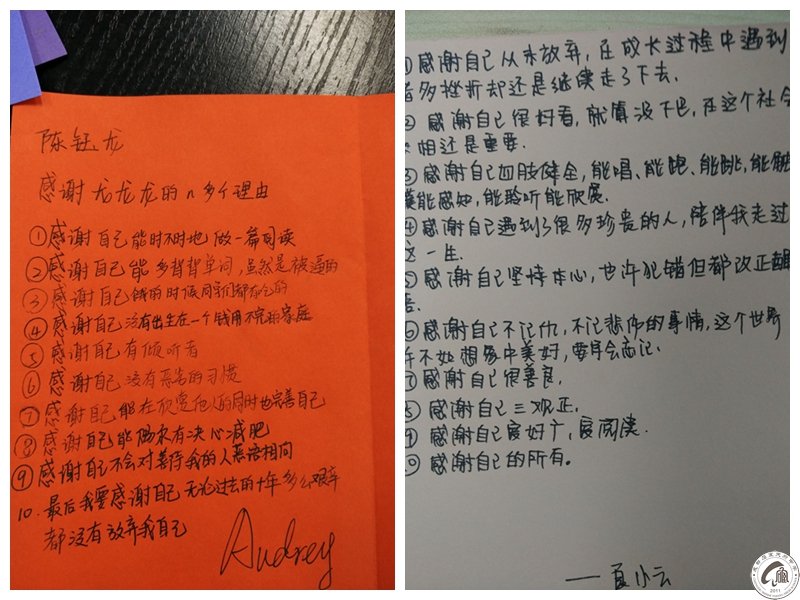 陈钰龙
感谢龙龙龙的n多个理由
①感谢自己能时不时地做一篇阅读
②感谢自己能多背背单词,虽然是被逼的
③感谢自己饿的时候同学们都有吃的
④感谢自己没有出生在一个钱用不完的家庭
⑤感谢自己有倾听者
⑥感谢自己没有恶劣的习惯
⑦感谢自己能在欣赏他人的同时也完善自己
⑧感谢自己能有决心减肥
⑨感谢自己不会对善待我的人恶语相向
10.最后我要感谢自己无论过去的十年多么艰辛
都没有放弃我自己
Audrey
①感谢自己从未放弃,在成长过程中遇到
诸多挫折却还是继续走了下去.
② 感谢自己很好看,就算没下巴,在这个社会
相还是重要.
③感谢自己四肢健全,能唱、能跑、能跳,能触
摸能感知,能聆听能欣赏.
④感谢自己遇到了很多珍贵的人,陪伴我走过
这一生.
⑤感谢自己坚持本心,也许犯错但都改正醒
悟.
⑥感谢自己不记仇,不记悲伤的事情,这个世界
许不如想象中美好,要学会忘记.
⑦感谢自己很善良.
⑧ 感谢自己三观正.
⑨ 感谢自己爱好广,爱阅读.
⑩ 感谢自己的所有。
——夏小云
2011